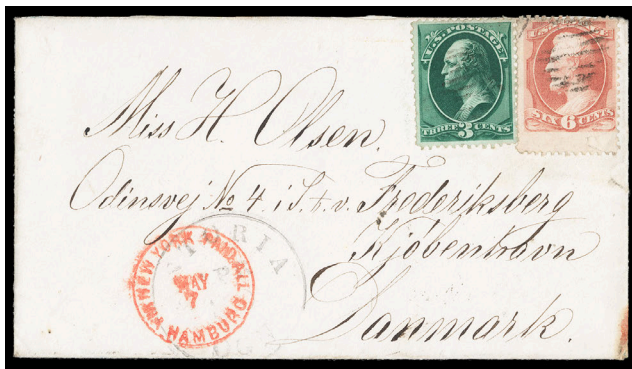 U.S. POSTAGE
THREE 3 CENTS
SIX 6 CENTS
Miss H. Olsen.
Odinsvej No 4. i S. t. v. Frederiksberg
Kjöbenhvn
Danmark.
NEW YORK PAID ALL
MAY
7
HAMBURG